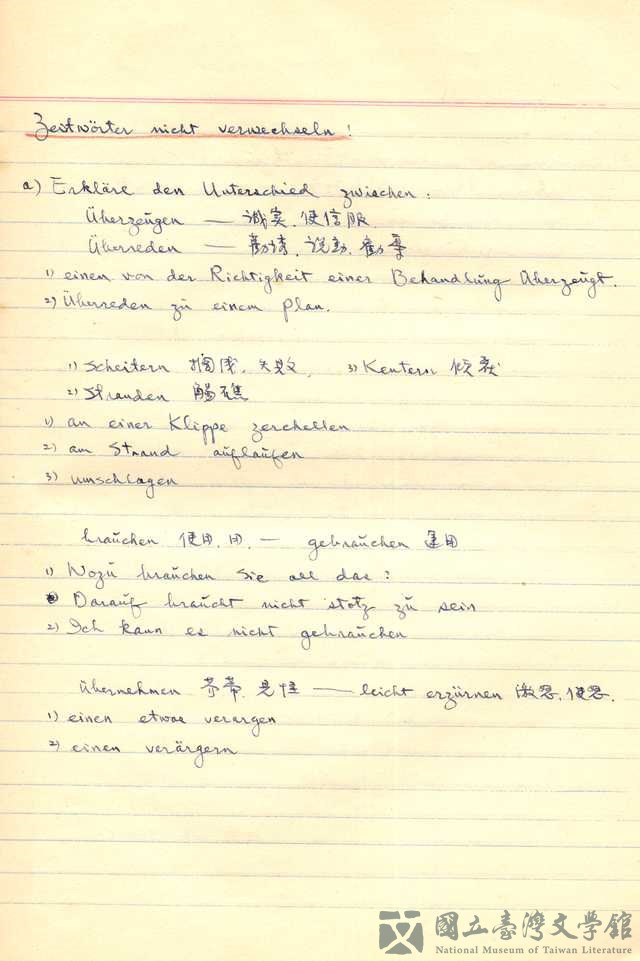 Zeitwörter nicht verwechseln!
a) Erkläre den Unterschied zwischen:
Überzeugen — 誠実、使信服
Überreden — 勸誘、説動、勸
1) einen von der Richtigkeit einer Behandlung überzeugt.
2) Überreden zu einem Plan.
1) Scheitern 失敗、 3) Kentern 傾
2) Stranden 觸礁
1) an einer Klippe zerchellen
2) am Strand auflaufen
3) umschlagen
brauchen 使用、用、— gebrauchen 運用
1) Wozu brauchen Sie all das?
Darauf braucht nicht stotz zu sein
2) Ich kann es nicht gebrauchen
übernehmen 芥蒂、見怪 — leicht erzürnen 激怒、使怒、
1) einen etwas verargen
2) einen verärgern
國立臺灣文學館
National Museum of Taiwan Literature